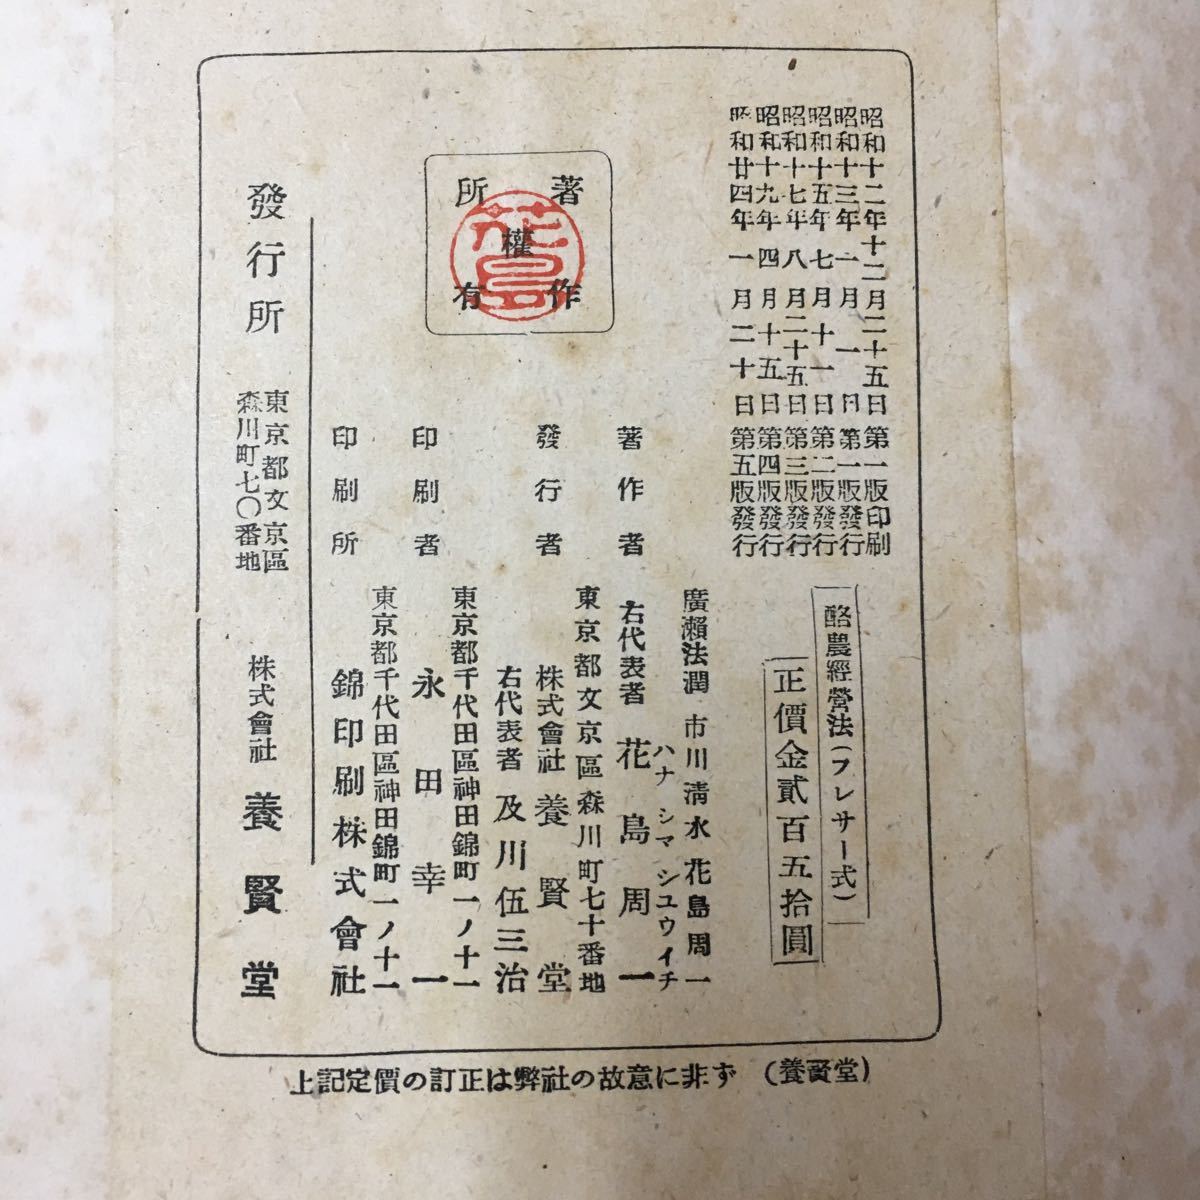 昭和十二年十二月二十五日第一版印刷
昭和十三年一月一日第一版發行
昭和十五年七月十一日第二版發行
昭和十七年八月二十五日第三版發行
昭和十九年四月十五日第四版發行
昭和廿四年一月二十日第五版發行
酪農經營法(フレサー式)
正價金貳百五拾圓
著作權所有
花島
廣瀨法潤 市川淸水 花島周一
ハナ シマ シユウイチ
著作者 右代表者 花島周一
東京都文京區森川町七十番地
發行者 株式會社 養賢堂
右代表者 及川伍三治
東京都千代田區神田錦町一ノ十一
印刷者 永田幸一
東京都千代田區神田錦町一ノ十一
印刷所 錦印刷株式會社
發行所 東京都文京區森川町七〇番地 株式會社 養賢堂
上記定價の訂正は弊社の故意に非ず (養賢堂)